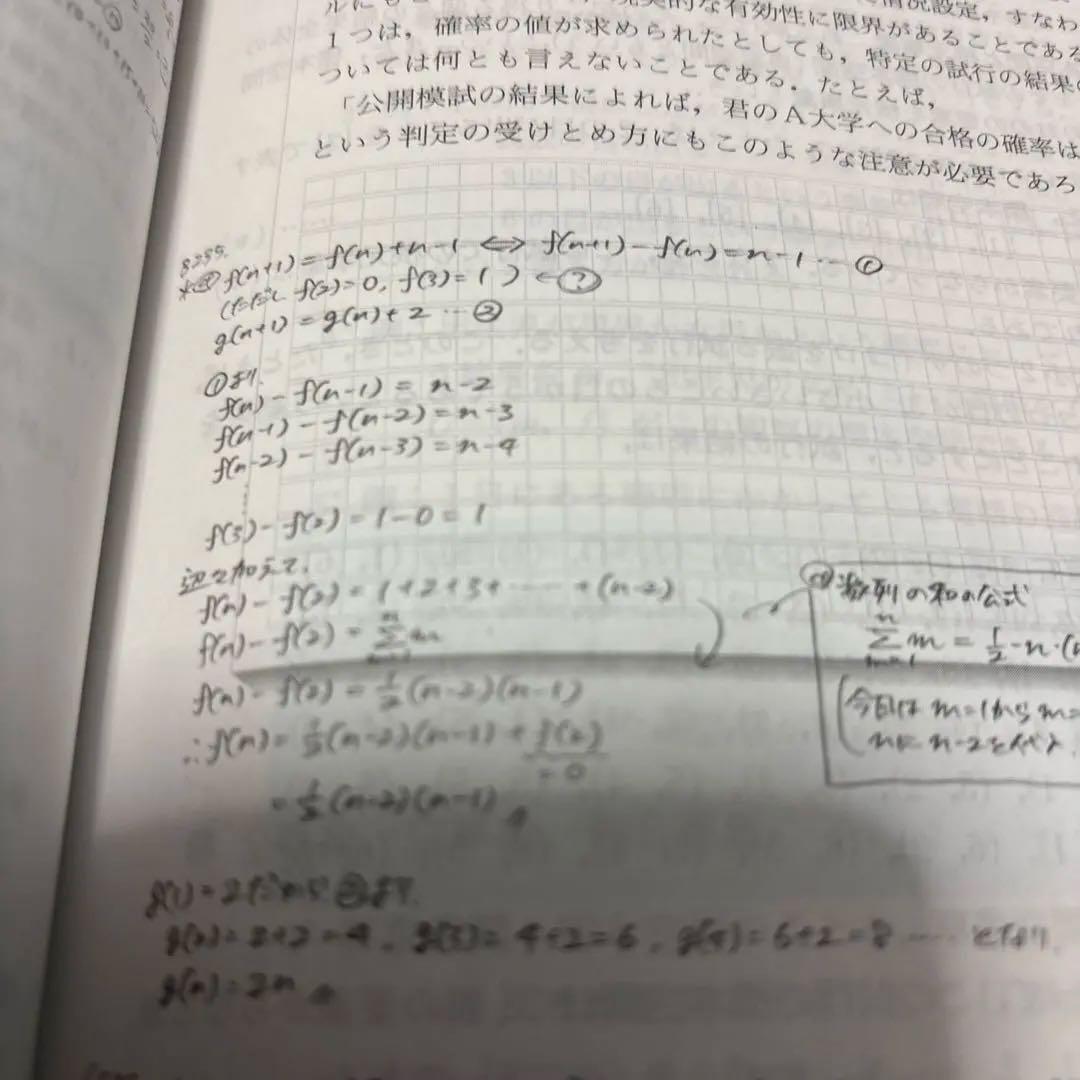 現実的な有効性に限界があることである
情況設定,すなわ
1つは,確率の値が求められたとしても,特定の試行の結果
ついては何とも言えないことである.たとえば,
「公開模試の結果によれば,君のA大学への合格の確率は
という判定の受けとめ方にもこのような注意が必要であろ
f(n+1)=f(n)+n-1 ⇔ f(n+1)-f(n)=n-1 … ①
(ただし f(2)=0, f(3)=1) ← ?
g(n+1)=g(n)+2 … ②
①より.
f(n)-f(n-1)=n-2
f(n-1)-f(n-2)=n-3
f(n-2)-f(n-3)=n-4
f(3)-f(2)=1-0=1
辺々加えて.
f(n)-f(2)=1+2+3+……+(n-2)
f(n)-f(2)=
f(n)-f(2)=1/2(n-2)(n-1)
∴f(n)=1/2(n-2)(n-1)+f(2)
=0
=1/2(n-2)(n-1)
数列の和の公式
n
Σ m = 1/2·n·(
m=1
(今回は m=1から m=
nに n-2を代入.
g(1)=2だから ②より.
g(2)=2+2=4, g(3)=4+2=6, g(4)=6+2=8 …… となり.
g(n)=2n